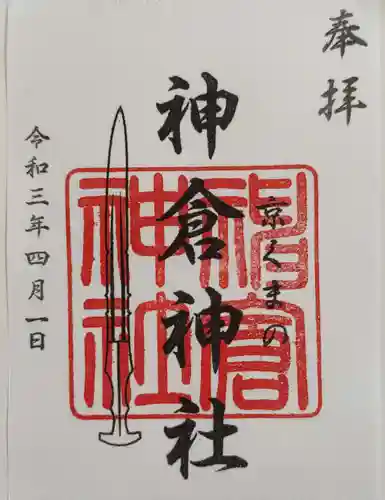 奉拝
京くまの
神倉神社
令和三年四月一日
神倉神社